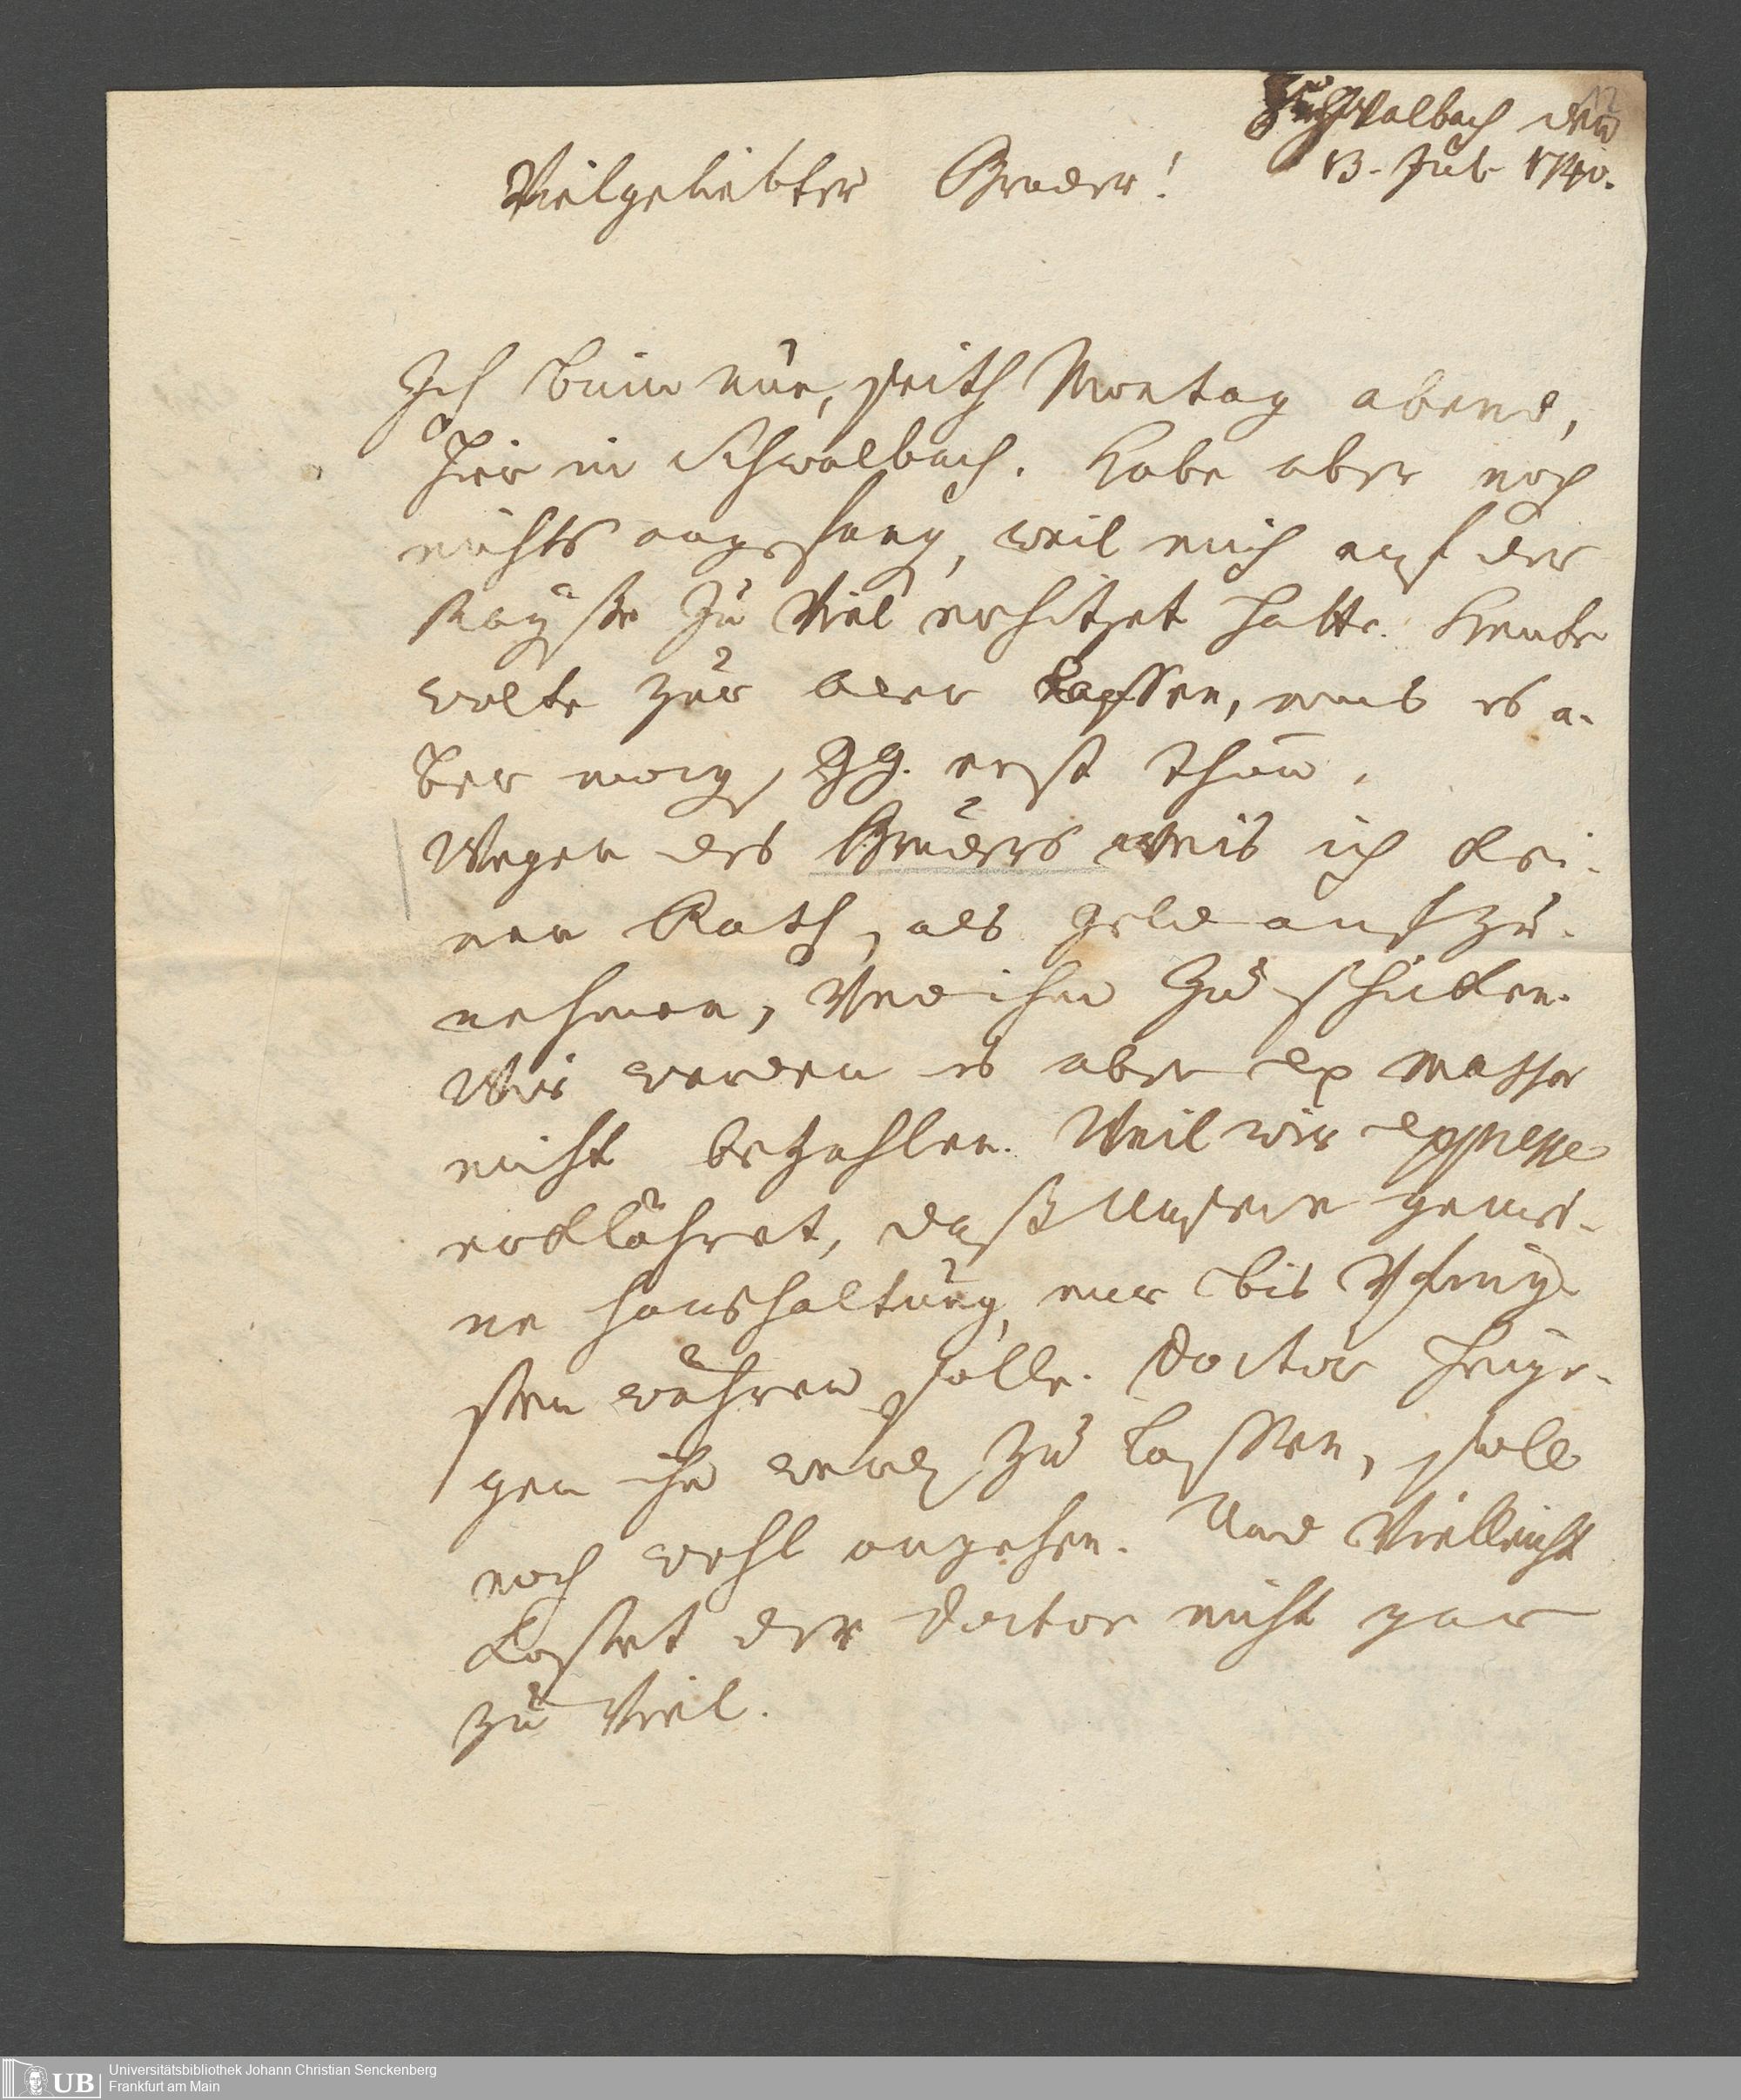 12
Schwalbach den
13. Jul. 1740.
Vielgeliebter Bruder!
Ich bein nun, seith Montag abend,
hier in Schwalbach. Habe aber noch
nichts angefang, weil mich auf der
Rayße zu Viel erhitzet hatte. Heute
wolte zur ader lassen, muß es a-
ber morg, GG. erst thun.
Wegen des Bruders weis ich kei-
nen Rath, als geld auf zu-
nehmen, Und ihm zu schicken.
Wir werden es aber ex massa
nicht bezahlen. Weil wir expresse
erklähret, daß Unsere gemei-
ne haushaltung, nur bis Pfing-
sten währen solle. Doctor
gen ihn zu lassen, soll
noch wohl angehen. Und Vielleicht
kostet der Doctor nicht gar
zu Viel.
UB
Universitätsbibliothek Johann Christian Senckenberg
Frankfurt am Main